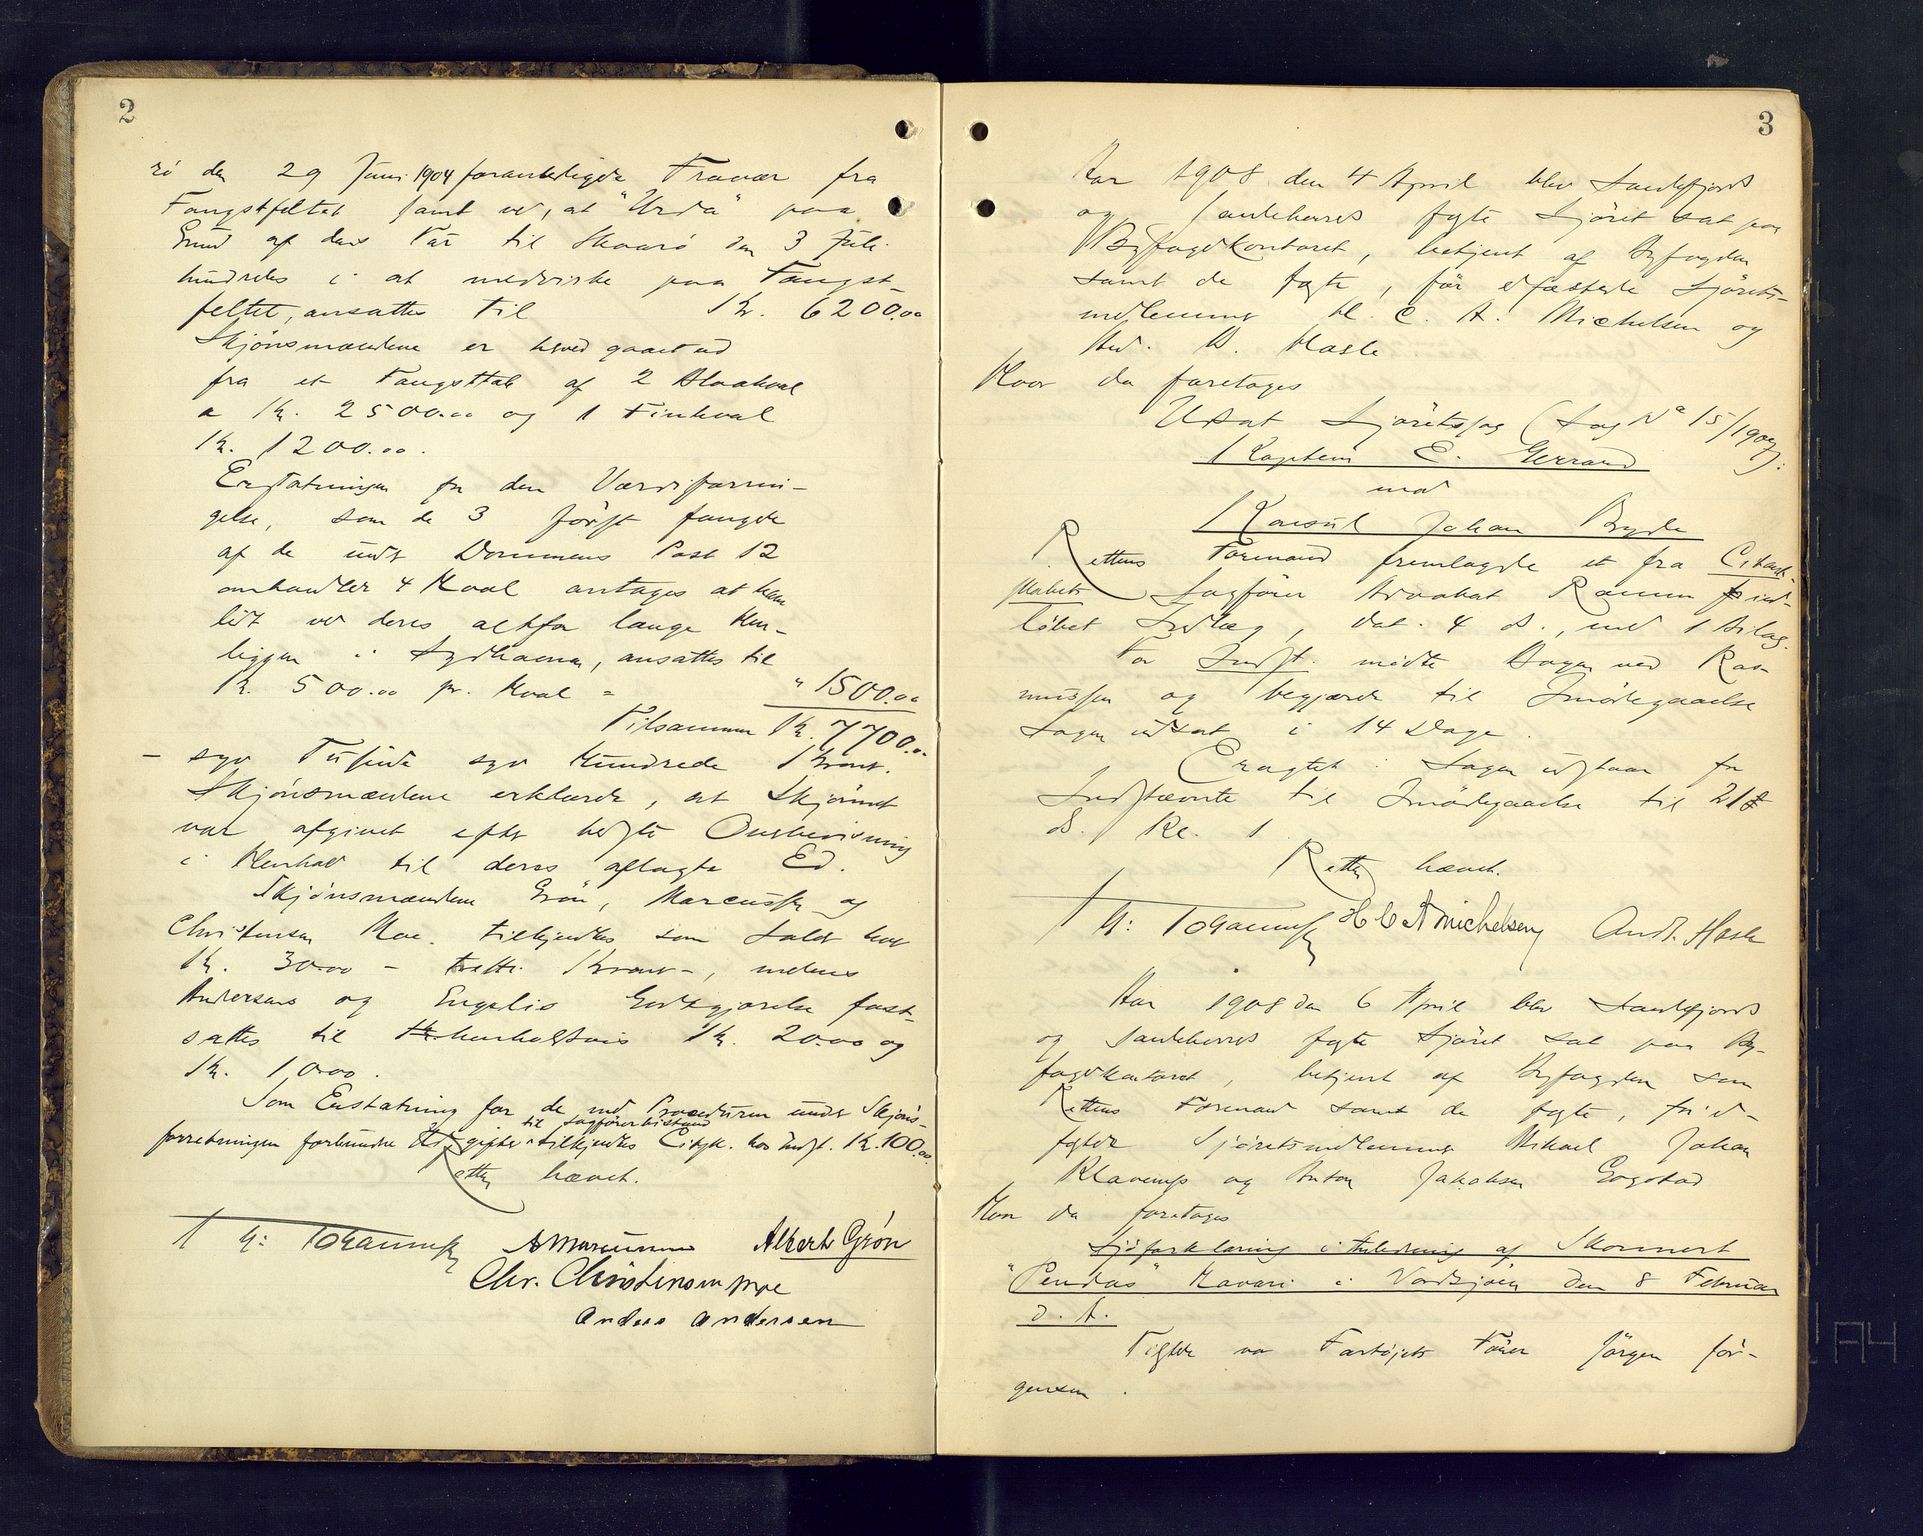 2
rö den 29 Juni 1904 foranledigede Fravær fra
Fangstfeltet samt ved, at "Urda" paa
Grund af dens Tur til Skaarö den 3 Juli
hindredes i at medvirke paa Fangst-
feltet, ansattes til Kr. 6200.00
Skjönsmændene er herved gaaet ud
fra et Fangsttab af 2 Blaahval
a Kr. 2500.00 og 1 Finhval
Kr. 1200.00.
Erstatningen for den Værdiforrin-
gelse, som de 3 först fangede
af de under Dommens Post 12
omhandlede 4 Hval antages at have
lidt ved deres altfor lange Hen-
liggen i Sydhavna, ansattes til
Kr. 500.00 pr. Hval = " 1500.00
Tilsammen Kr. 7700.00
- syv Tusinde syv Hundrede Kroner.
Skjönsmændene erklærede, at Skjönnet
var afgivet efter bedste Overbevisning
i Henhold til deres aflagte Ed.
Skjönsmændene Grön, Marcussen og
Christensen Moe tilkjendtes som Salær hver
Kr. 30.00 - tretti Kroner -, medens
Andersens og Engelis Godtgjörelse fast-
sattes til henholdsvis Kr. 20.00 og
Kr. 10.00.
Som Erstatning for de med Proceduren under Skjöns-
til sagförerbistand
forretningen forbundne Udgifter tilkjendtes Citsk. hos Indst. Kr. 100.00.
Retten hævet.
Johannessen A Marcussen Albert Grøn
Chr. Christensen Moe
Anders Andersen
3
Aar 1908 den 4 April blev Sandefjords
og Sandeherreds faste Sjöret sat paa
Byfogedkontoret, betjent af Byfogden
samt de faste, för edfæstede Sjörets-
medlemmer H. C. A. Michelsen og
And. B. Hasle
Hvor da foretoges
Udsat Sjöretssag (Sag No 15/1907):
Kaptein E. Gerrand
mod
Konsul Johan Bryde
Rettens Formand fremlagde et fra Citant-
skabets Sagförer Advokat Ramm ind-
löbet Indlæg, dat. 4 ds., med 1 Bilag.
For Indst. mödte Bogen ved Ras-
mussen og begjærede til Imödegaaelse
Sagen udsat i 14 Dage.
Eragtet: Sagen udstaar for
Indstævnte til Imödegaaelse til 21de
ds. Kl. 1
Retten hævet.
Johannessen H C A Michelsen Andr. Hasle
Aar 1908 den 6 April blev Sandefjords
og Sandeherreds faste Sjöret sat paa By-
fogedkontoret, betjent af Byfogden som
Rettens Formand samt de faste, för ed-
fæstede Sjöretsmedlemmer Mikael Johan
Klavenes og Anton Jakobsen Gogstad
Hvor da foretoges
Sjöforklaring i Anledning af Skonnert
"Pendas" Havari i Nordsjöen den 8 Februar
d. A.
Tilstede var Fartöjets Förer Jörgen Jör-
gensen.